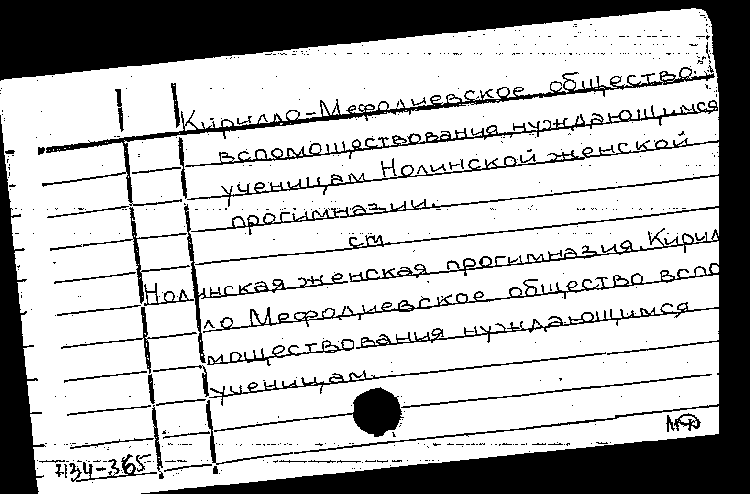 Кирилло-Мефодиевское общество
вспомоществования нуждающимся
ученицам Нолинской женской
прогимназии.
см.
Нолинская женская прогимназия. Кирил
ло Мефодиевское общество вспо
моществования нуждающимся
ученицам.
МФ
434-365